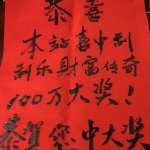 恭喜
本站喜中刮
刮乐財富传奇
100万大奖!
恭賀您中大奖